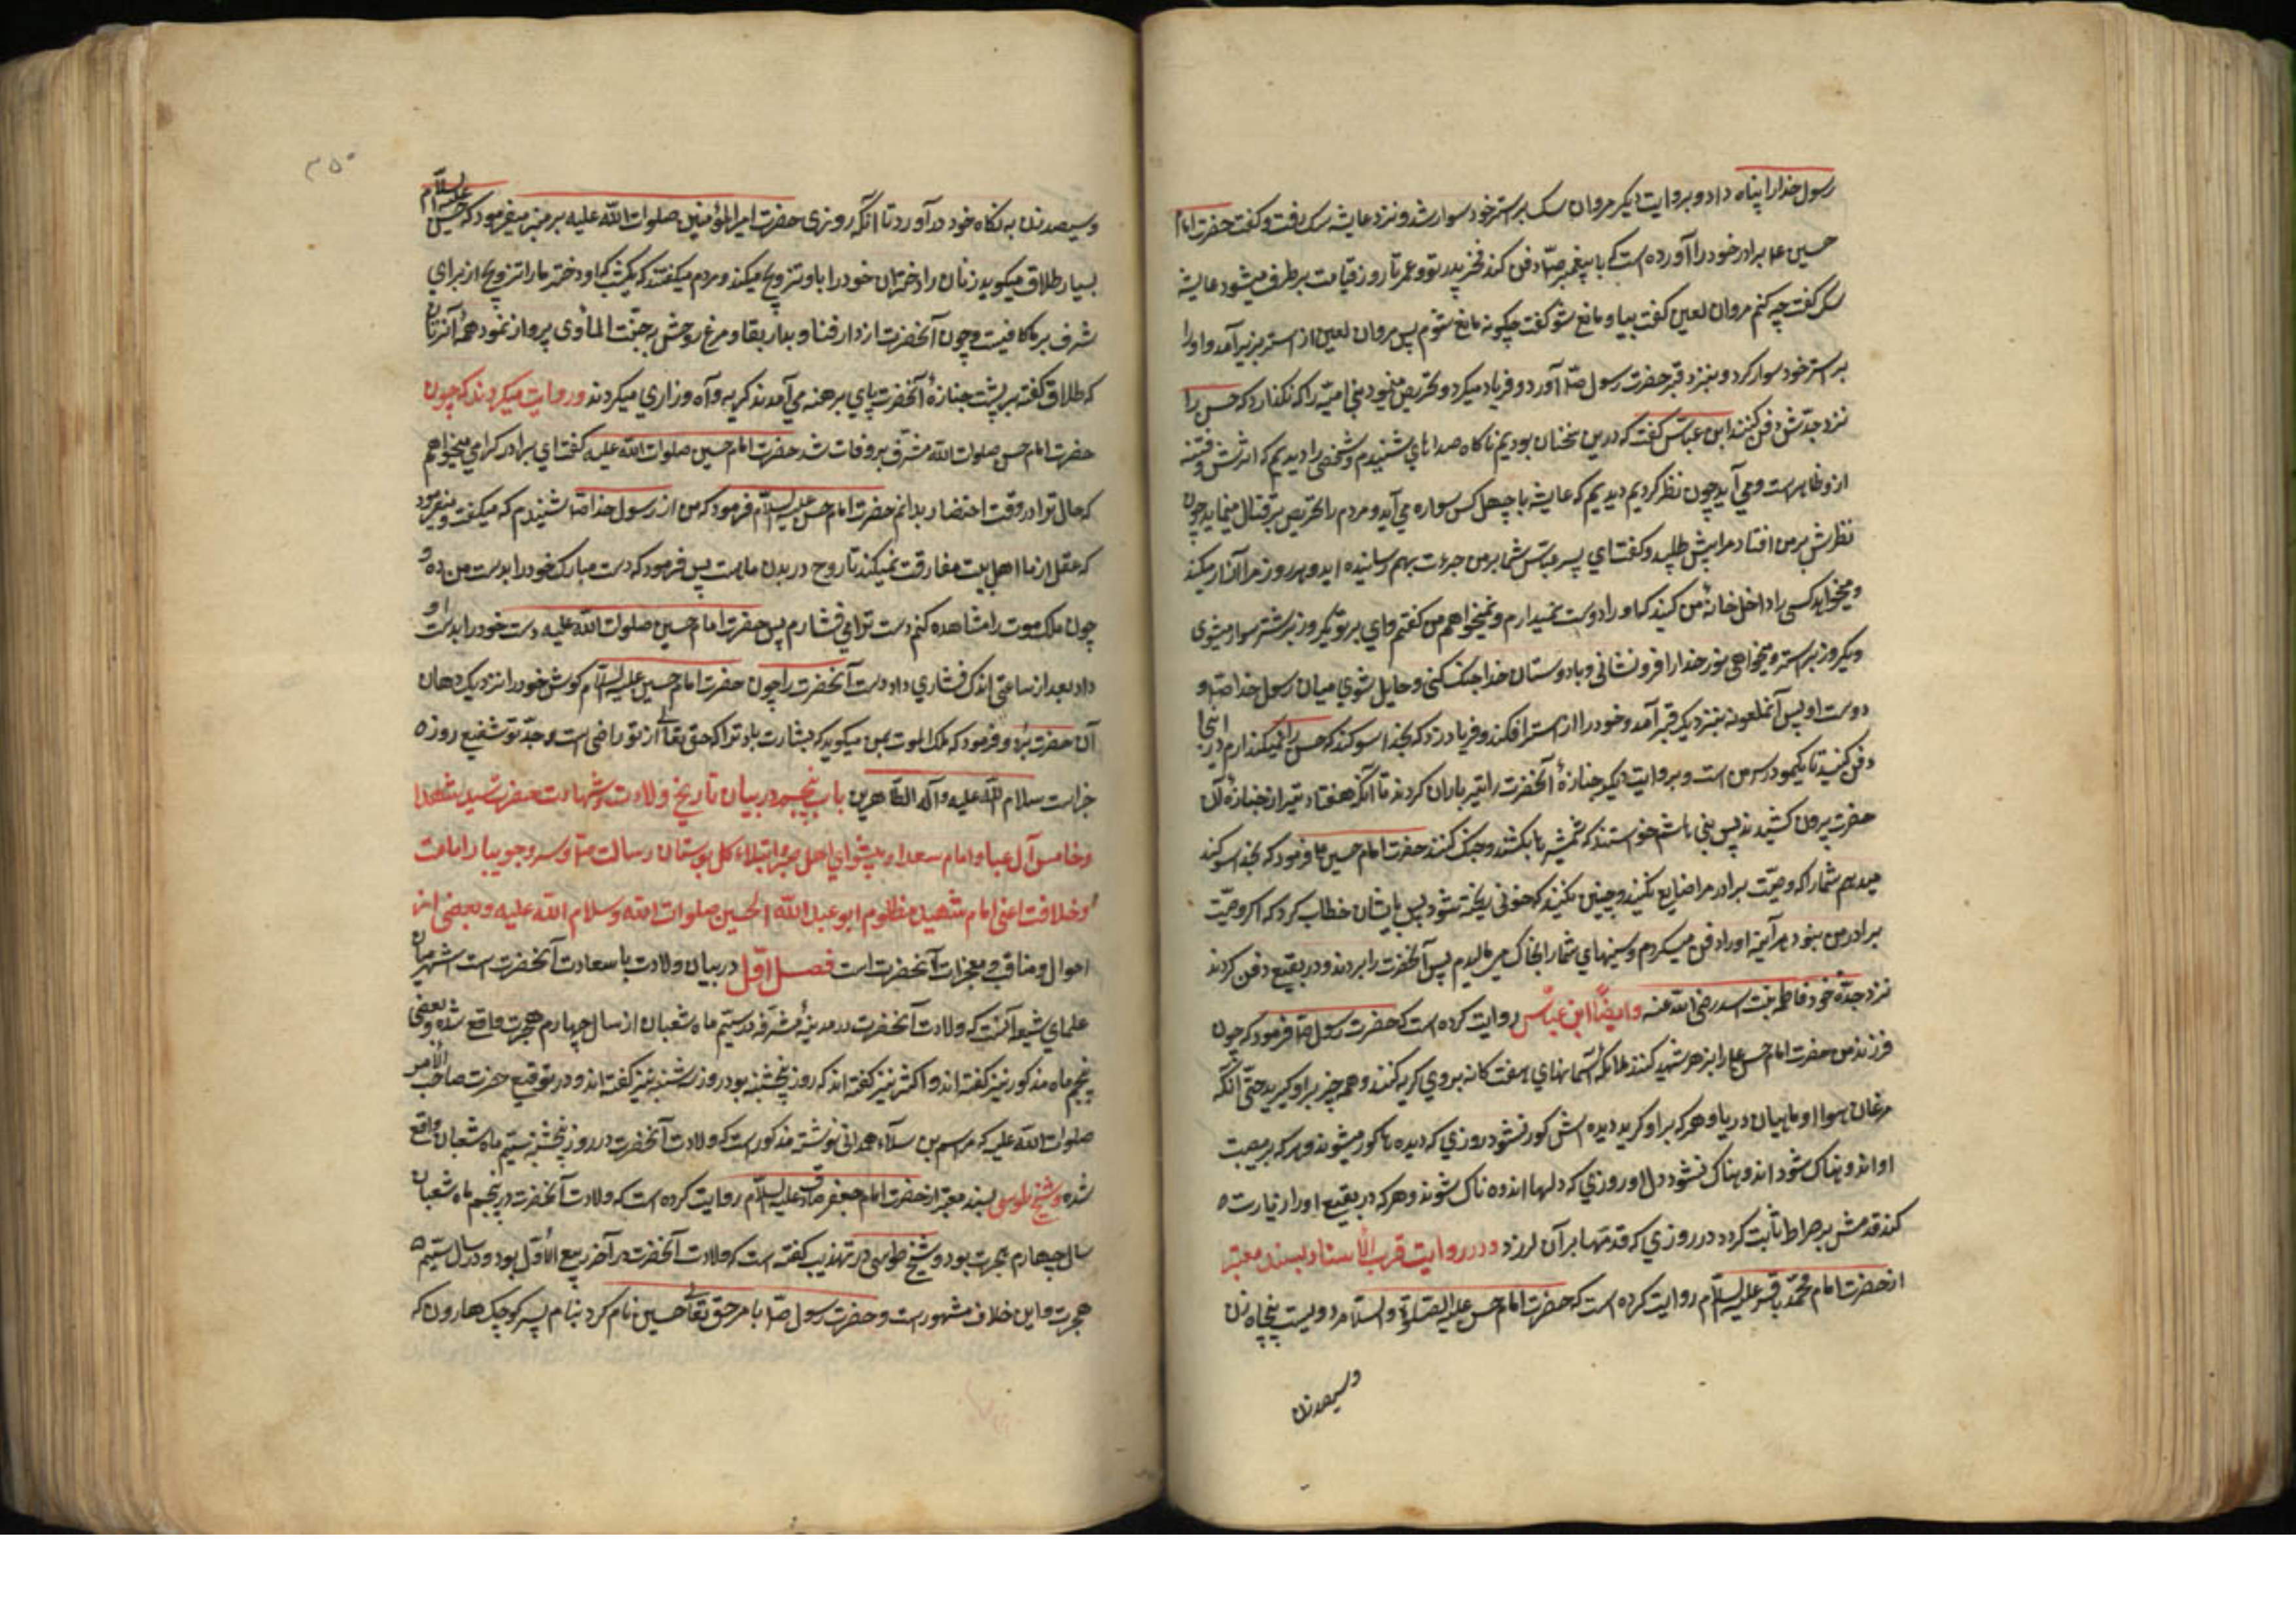 رسول خدا را پناه داد و بروایت دیگر مروان سک بر استر خود سوار شد و نزد عایشه سک رفت و گفت حضرت امام
حسین ع برادر خود را آورده است که با پیغمبر ص دفن کند فخر پدر تو و عمر تا روز قیامت برطرف میشود عایشه
سک گفت چه کنم مروان لعین گفت بیا و مانع شو گفت چگونه مانع شوم پس مروان لعین از استر بزیر آمد و او را
بر استر خود سوار کرد و بنزد قبر حضرت رسول ص آورد و فریاد میکرد و تحریص مینمود بنی امیه را که نگذارد که حسن را
نزد جدش دفن کنند ابن عباس گفت که در این سخنان بودیم ناکاه صداهای شنیدم و شخصی را دیدیم که اثر شر و فتنه
از و ظاهر است و می آید چون نظر کردیم دیدیم که عایشه با چهل کس سواره می آید و مردم را تحریص بر قتال مینماید چون
نظرش بر من افتاد مرا پیش طلبید و گفت ای پسر عباس شما بر من جرءت بهم رسانیده اید و هر روز مرا آزار میکند
و میخواهد کسی را داخل خانهٔ من کنید که او را دوست نمیدارم و نمیخواهم من گفتم وای بر تو یکروز بر شتر سوار میشوی
و یکروز بر استر و میخواهی نور خدا را فرو نشانی و با دوستان خدا جنک کنی و حایل شوی میان رسول خدا ص و
دوست او پس آنملعونه بنزدیک قبر آمد و خود را از استر افکند و فریاد زد که بخدا سوکند که حسن را نمیگذارم در اینجا
دفن کنید تا یکمو در سر من است و بروایت دیگر جنازهٔ آنحضرت را تیرباران کردند تا آنکه هفتاد تیر از جنازهٔ آن
حضرت بیرون کشیدند پس بنی هاشم خواستند که شمشیرها بکشند و جنک کنند حضرت امام حسین ع فرمود که بخدا سوکند
میدهم شما را که وصیت برادر مرا ضایع نکنید و چنین نکنید که خونی ریخته شود پس بایشان خطاب کرد که اکر وصیت
برادر من نبود هر آینه او را دفن میکردم و بینیهای شما را بخاک می مالیدم پس آنحضرت را بردند و در بقیع دفن کردند
نزد جدهٔ خود فاطمه بنت اسد رضی الله عنه و ایضًا ابن عباس روایت کرده است که حضرت رسول ص فرمود که چون
فرزند من حضرت امام حسن ع را بزهر شهید کنند ملائکه آسمانهای هفت کانه بروی کریه کنند و همه چیز بر او کرید حتی آنکه
مرغان هوا و ماهیان دریا و هر که بر او کرید دیده اش کور نشود روزی که دیده ها کور میشوند و هر که بر مصیبت
او اندوهناک شود اندوهناک نشود دل او روزی که دلها اندوه ناک شوند و هر که در بقیع او را زیارت
کند قدمش بر صراط ثابت کردد در روزی که قدمها بر آن لرزد و در روایت قرب الاسناد بسند معتبر
از حضرت امام محمد باقر علیه السلام روایت کرده است که حضرت امام حسن علیه الصلوة و السلام دویست پنجاه زن
وسیصد زن
۳۵۰
وسیصد زن به نکاه خود در آورد تا آنکه روزی حضرت امیر المؤمنین صلوات الله علیه بر منبر میفرمود که حسن علیه السلام
بسیار طلاق میکوید زنان را دختران خود را باو تزویج میکند و مردم میکفتند که یکشب که او دختر ما را تزویج از برای
شرف بر ما کافیست و چون آنحضرت از دار فنا و بدار بقا و مرغ روحش به جنت المأوی پرواز نمود همهٔ آنزنان
که طلاق کفته بر پشت جنازهٔ آنحضرت پای برهنه می آمدند کریه و آه و زاری میکردند و روایت میکردند که چون
حضرت امام حسن صلوات الله مشرف بر وفات شد حضرت امام حسین صلوات الله علیه گفت ای برادر کرامی میخواهم
که حال ترا در وقت احتضار بدانم حضرت امام حسن علیه السلام فرمود که من از رسول خدا ص شنیدم که میکفت و میفرمود
که عقل از ما اهل بیت مفارقت نمیکند تا روح در بدن ماست پس فرمود که دست مبارک خود را بدست من ده و
چون ملک موت را مشاهده کنم دست ترا می فشارم پس حضرت امام حسین صلوات الله علیه دست خود را بدست او
داد بعد از ساعتی اندک فشاری داد دست آنحضرت را چون حضرت امام حسین علیه السلام کوش خود را نزدیک دهان
آن حضرت برد و فرمود که ملک الموت بمن میکوید که بشارت باد ترا که حق تعالی از تو راضی است و جد تو شفیع روز
جزاست سلام الله علیه و آله الطاهرین باب پنجم در بیان تاریخ ولادت و شهادت حضرت سید شهدا
و خامس آل عبا و امام سعدا و پیشوای اهل ابتلاء کل بوستان رسالت و سرو جویبار امامت
و خلافت اعنی امام شهید مظلوم ابو عبد الله الحسین صلوات الله و سلام الله علیه و بعضی از
احوال و مناقب و معجزات آنحضرت است فصل اول در بیان ولادت با سعادت آنحضرت است اشهر میان
علمای شیعه آنست که ولادت آنحضرت در مدینهٔ مشرفه در سیم ماه شعبان از سال چهارم هجرت واقع شده و بعضی
پنجم ماه مذکور نیز گفته اند و اکثر نیز کفته اند که روز پنجشنبه بود و روز سه شنبه نیز کفته اند و در توقیع حضرت صاحب الامر
صلوات الله علیه که بقاسم بن علاء همدانی نوشته مذکور است که ولادت آنحضرت در روز پنجشنبه سیم ماه شعبان واقع
شده و شیخ طوسی بسند معتبر از حضرت امام جعفر صادق علیه السلام روایت کرده است که ولادت آنحضرت در پنجم ماه شعبان
سال چهارم هجرت بود و شیخ طوسی در تهذیب کفته است که ولادت آنحضرت در آخر ربیع الاول بود و در سال سیم
هجرت و این خلاف مشهور است و حضرت رسول ص بامر حق تعالی حسین نام کرد بنام پسر کوچک هارون که